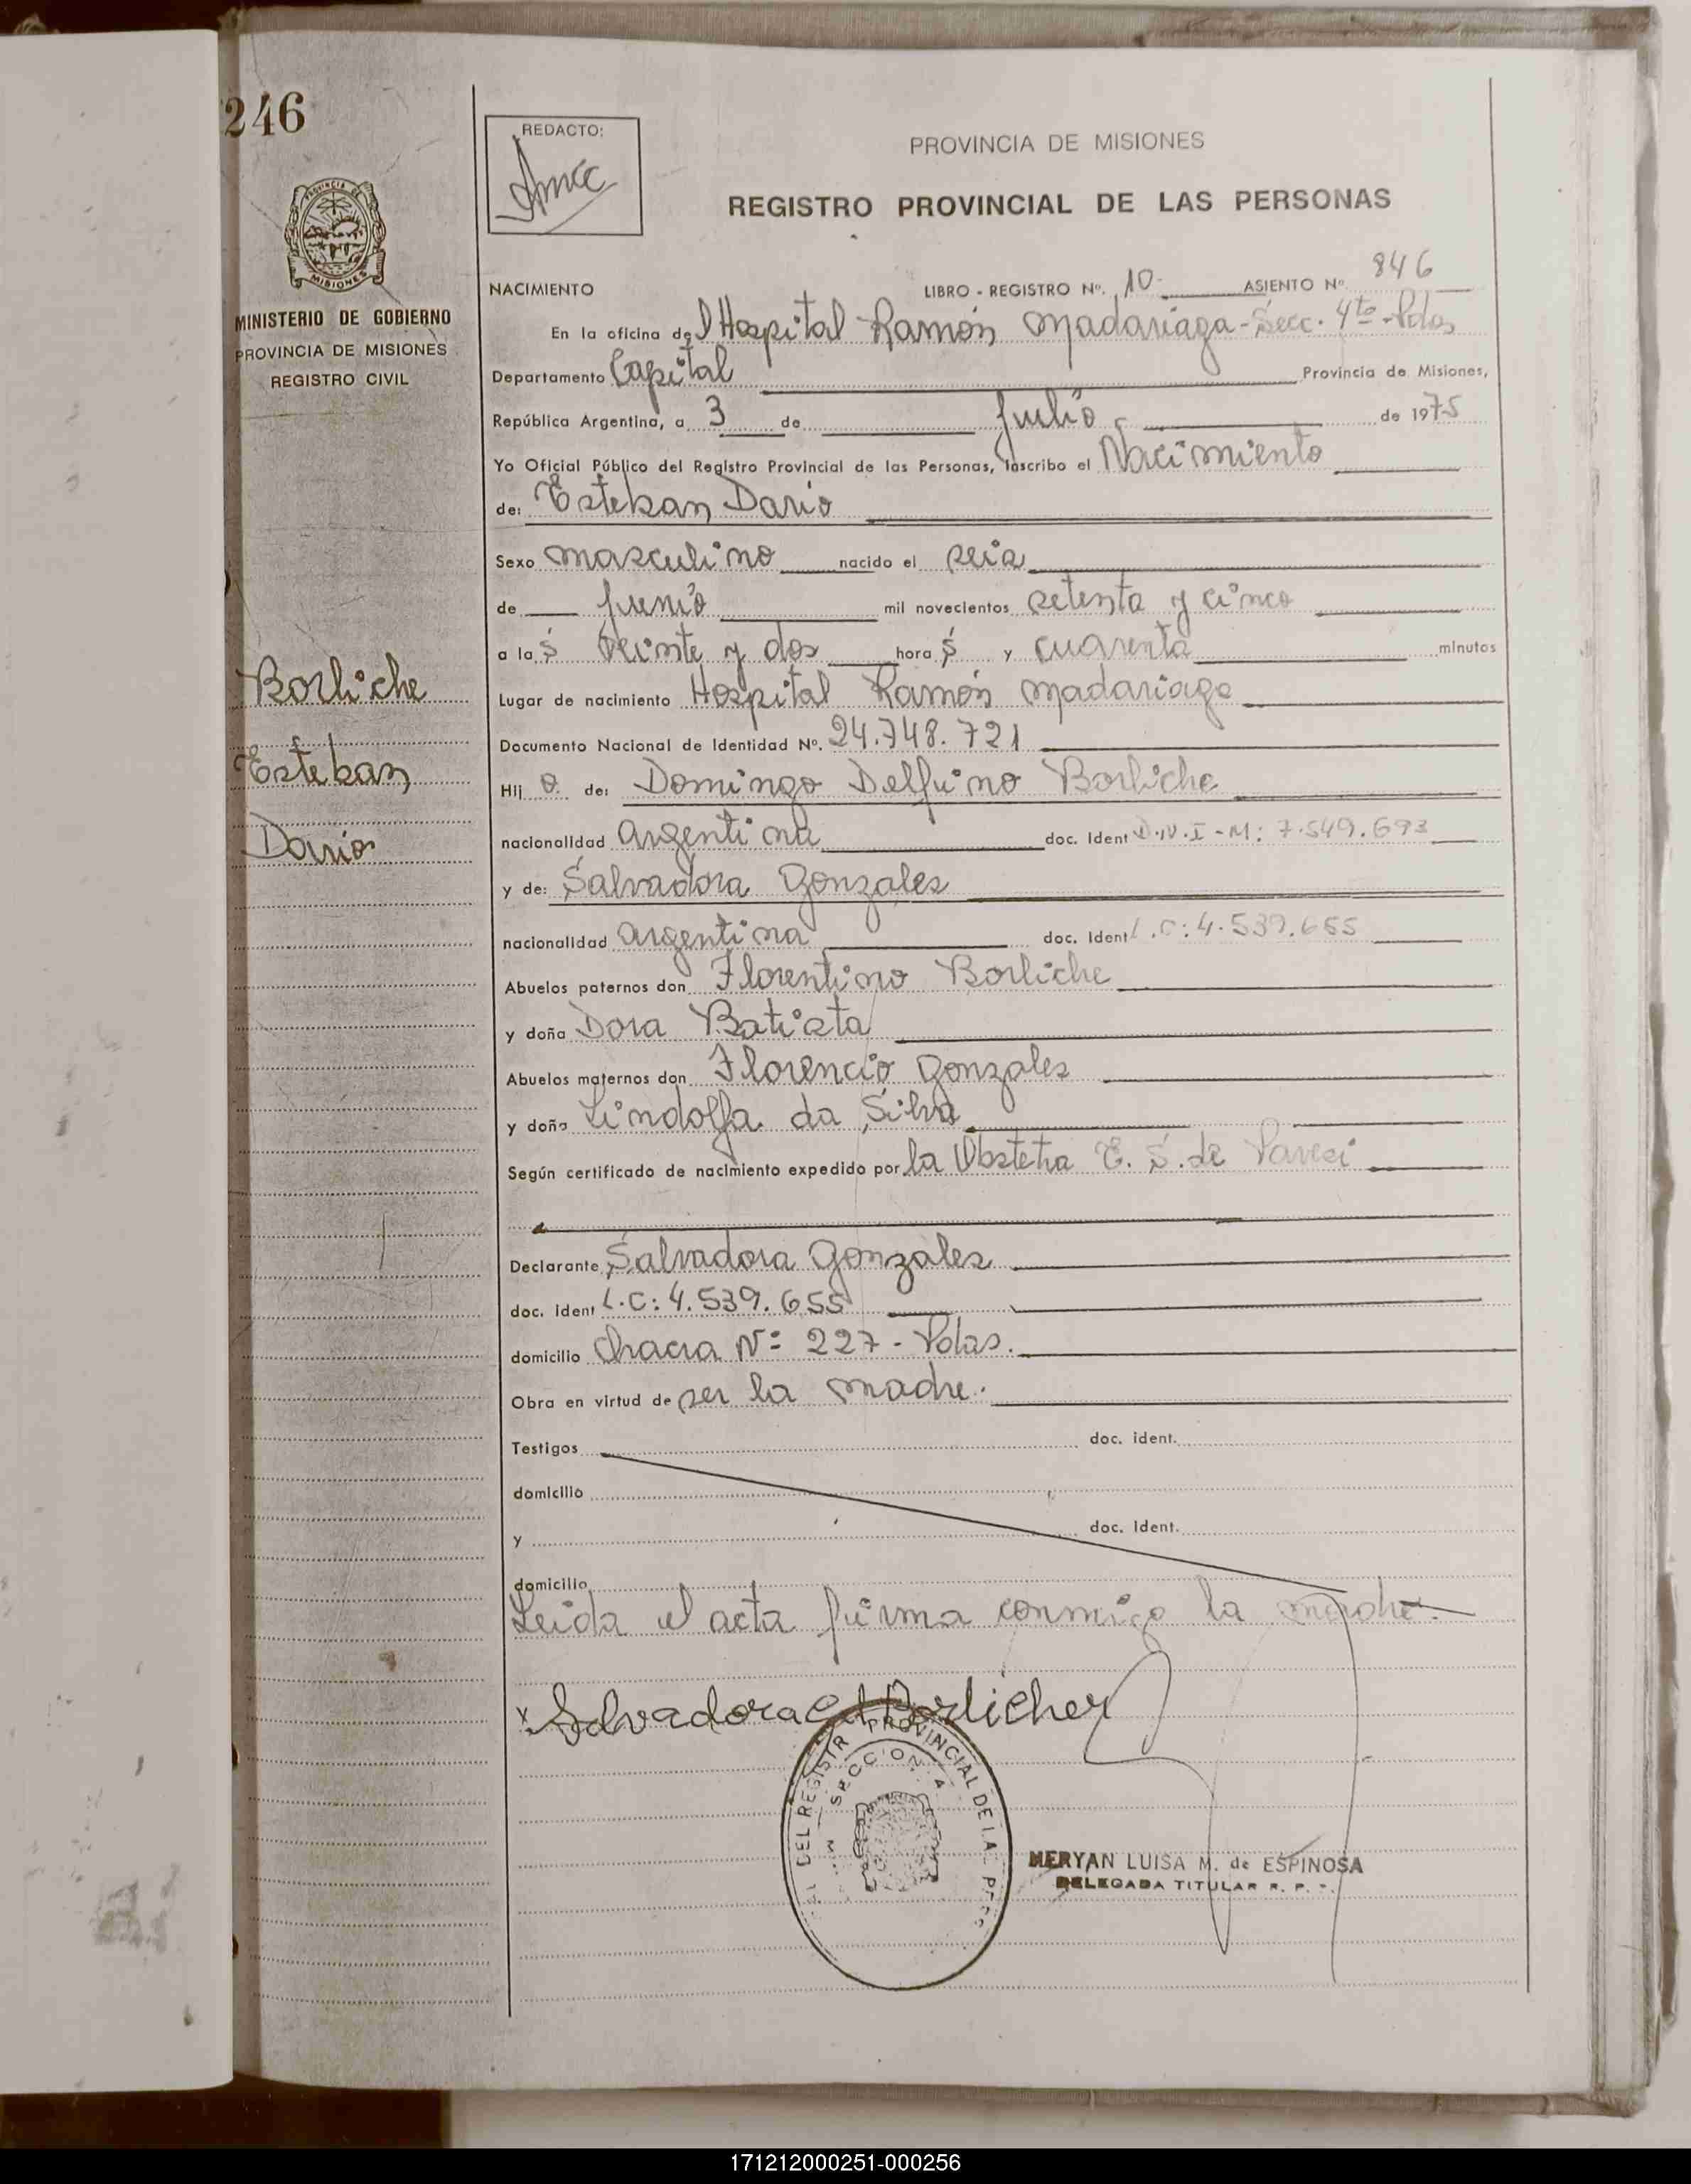 246
REDACTO:
PROVINCIA DE MISIONES
REGISTRO PROVINCIAL DE LAS PERSONAS
PROVINCIA DE MISIONES
MINISTERIO DE GOBIERNO
PROVINCIA DE MISIONES
REGISTRO CIVIL
NACIMIENTO LIBRO - REGISTRO Nº. 10 ASIENTO Nº 846
En la oficina del Hospital Ramón Madariaga - Secc. 4ta - Pdas
Departamento Capital Provincia de Misiones,
República Argentina, a 3 de Julio de 1975
Yo Oficial Público del Registro Provincial de las Personas, inscribo el Nacimiento
de: Esteban Dario
Sexo masculino nacido el seis
de junio mil novecientos setenta y cinco
a las veinte y dos horas y cuarenta minutos
Borliche
Esteban
Dario
Lugar de nacimiento Hospital Ramón Madariaga
Documento Nacional de Identidad Nº. 24.748.721
Hijo de: Domingo Delfino Borliche
nacionalidad argentina doc. Ident D.N.I - M: 7.549.693
y de: Salvadora Gonzales
nacionalidad argentina doc. Ident L.C: 4.539.655
Abuelos paternos don Florentino Borliche
y doña Dora Batista
Abuelos maternos don Florencio Gonzales
y doña Lindolfa da Silva
Según certificado de nacimiento expedido por la Obstetra E. S. de Pavesi
Declarante Salvadora Gonzales
doc. ident L.C: 4.539.655
domicilio Chacra Nº 227 - Pdas.
Obra en virtud de ser la madre.
Testigos doc. ident.
domicilio
y doc. ident.
domicilio
Leida el acta firma conmigo la madre.
Salvadora Borlicher
DEL REGISTR PROVINCIAL DE LA PERS
SECCION 4
MERYAN LUISA M. de ESPINOSA
DELEGADA TITULAR R. P.
171212000251-000256